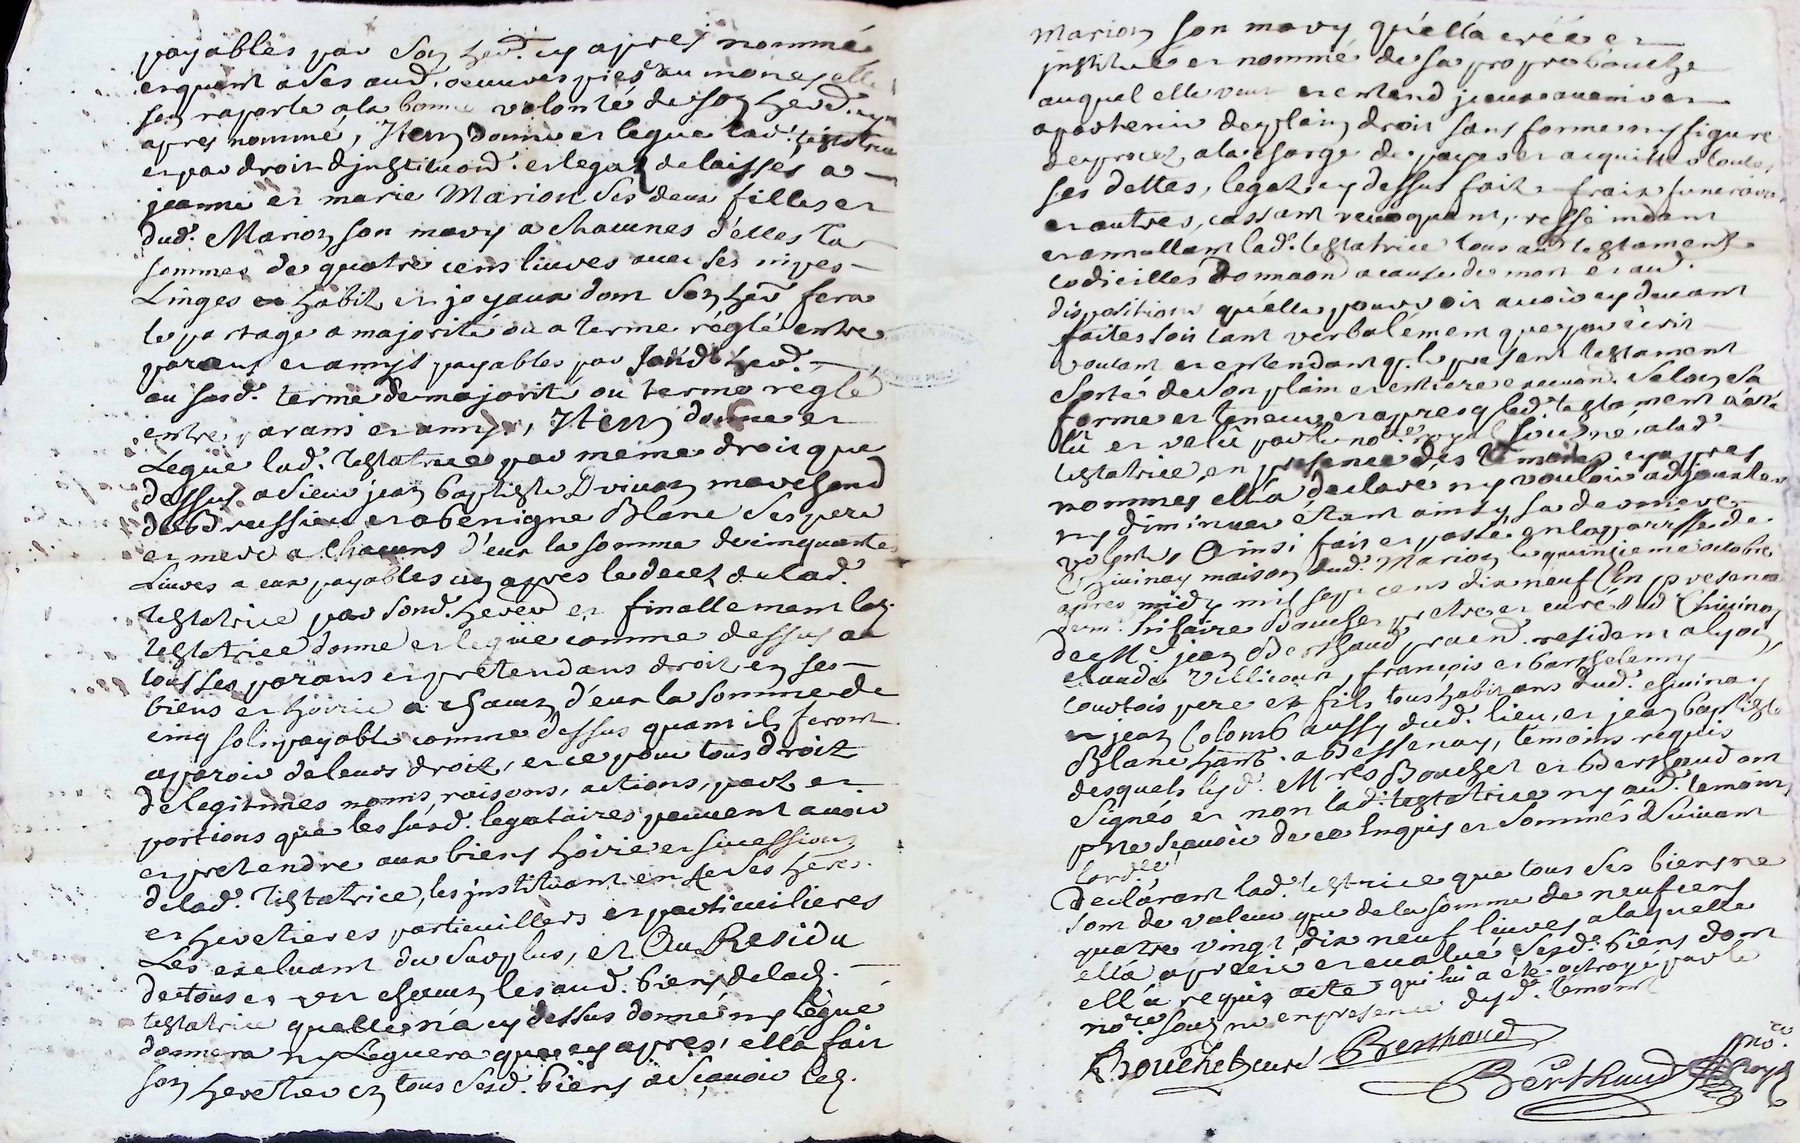 payables par son herd. cy apres nommé
et quant a ses aud. oeuvres pies au moien elle
sen raporte a la bonne volonté de son herd. cy
apres nommé, Item donne et legue lad. testatrice
et par droit djnstitution. et legat delaissés a
jeanne et marie Marion ses deux filles et
dud. Marion son mary a chacunes d'elles la
somme de quatre cens liuvres avec ses nipes
Linges et habitz et joyaux dont son her fera
le partage a majorité ou a terme réglé entre
parens et amys payables par sond. herd.
au susd. terme de majorité ou terme reglé
entre parans et amys, Item donne et
Legüe lad. testatrice par meme droit que
dessus a sieur jean baptiste Drivon marchand
de Bdrussieu et a benigne Blanc ses pere
et mere a chacuns d'eux la somme de cinquante
Liuvres a eux payables apres le decez de lad.
testatrice par sond. herer et finallemant lad.
testatrice donne et legüe comme dessus a
tous ses parans et pretendans droit en ses
biens et hoirie a chacun d'eux la somme de
cinq sols payable comme dessus quant ils feront
aparoir de leurs droit, et ce pour tous droit
de legitimes noms, raisons, actions, part et
portions que les susd. legataires peuvent avoir
et pretendre aux biens hoirie et sucession
de lad. testatrice, les jnstituant en ses hers.
et heretieres particuilliers et particuilieres
Les excluant du surplus, et Au Residu
de tous et un chacun les aud. biens de lad.
testatrice quelle n'a cy dessus donné ny légué
donnera ny Leguera que cy apres, ell'a fait
son heretier en tous sesd. biens a sçavoir led.
Marion son mary qu'ell'a créé et
jnstitué et nommé de sa propre bouche
auquel elle veut et entend jceux avenir et
apartenir de plain droit sans forme ny figure
de procez, a la charge de payer et acquitter toutes
ses dettes, legat, cy dessus fait, fraix funeraux
et autres, cassant revoquant, ressindant
et annullant lad. testatrice tous aut testament
codicilles donnaon a cause de mort et aud.
dispositions qu'elle pourroit avoir cy devant
faites soit tant verbalement que par ecrit
voulant et entendant q. le present testament
sorte de son plain et entiere execuon. selon sa
forme et teneur et apres q led. testament a eté
lû et relû par le nore. royal sousné, a lad.
testatrice, en presence des temoins cy apres
nommes ell'a declaré ny vouloir adjouster
ny diminuer étant ainsy sa derniere
volont, Ainsi fait et passé en la parrisse de
Chuinay maison dud. Marion le quinzieme octobre
apres midy mil sept cens dix neuf En presence
de mre. hilaire Boucher pretre et curé dud Chuinay
de Mr. jean Berthaud praend. resident a lyon,
claude Villioux, françois et barthelemy
courtois pere et fils tous habitans dud. chuinay
et jean Colomb aussy dud. lieu, et jean baptiste
Blanc habt. a Bessenay, témoins requis
desquels lesd. Mres Boucher et Berthaud ont
signés et non lad. testatrice ny aud. temoins
pne sçavoir de ce Enquis et sommés suivant
lordce
declarant lad. testatrice que tous ses biens ne
sont de valeur que de la somme de neuf cens
quatre vingt dix neuf liuvres a laquelle
ell'a aprecié et evalué sesd. biens dont
ell'a requis acte, qui lui a eté octroyé par le
nore sousné en presence desd. temoins
Bouchet curé Berthaud
Berthaud nore. Royal